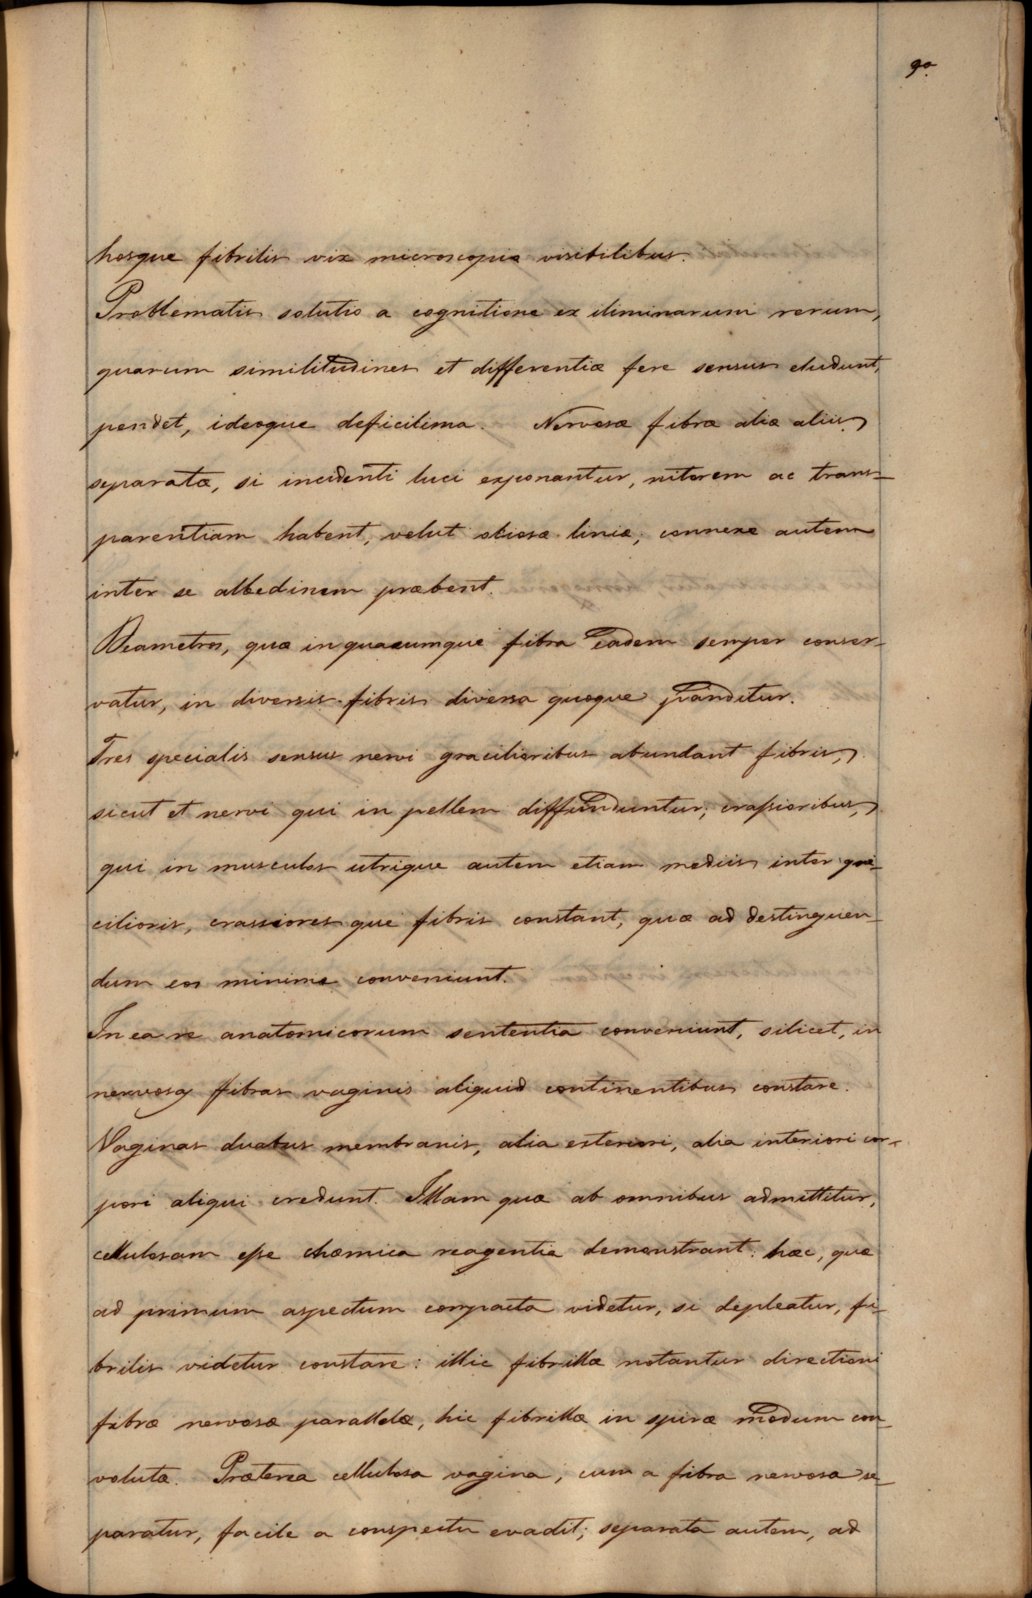 90.
hosque fibrilis vix microscopio visibilibus.
Problematis solutio a cognitione ex iliminarum rerum,
quarum similitudines et differentiæ fere sensus eludunt,
pendet, ideoque deficilima. Nervosæ fibræ aliæ aliis
separatæ, si incidenti luci exponantur, nitorem ac trans-
parentiam habent, velut oliosæ liniæ; connexe autem
inter se albedinem præbent.
Diametros, quæ in quacumque fibra eadem semper conser-
vatur, in diversis fibris diversa quoque panditur.
Tres specialis sensus nervi gracilioribus abundant fibris,
sicut et nervi qui in pellem diffunduntur; crassioribus,
qui in musculos utrique autem etiam mediis inter gra-
cilioris, crassiores que fibris constant, quæ ad destinguen-
dum eos minime conveniunt.
In ea re anatomicorum sententia conveniunt, silicet, in
nervosas fibras vaginis aliquid continentibus constare.
Vaginas duabus membranis, alia exteriori, alia interiori cor-
pori aliqui credunt. Illam quæ ab omnibus admittitur,
cellulosam esse chæmica reagentia demonstrant: hæc, quæ
ad primum aspectum compacta videtur, si depleatur, fi-
brilis videtur constare: illic fibrillæ notantur directioni
fibræ nervosæ parallelæ, hic fibrillæ in spiræ modum con-
volutæ. Præterea cellulosa vagina, cum a fibra nervosa se-
paratur, facile a conspectu evadit; separata autem, ad